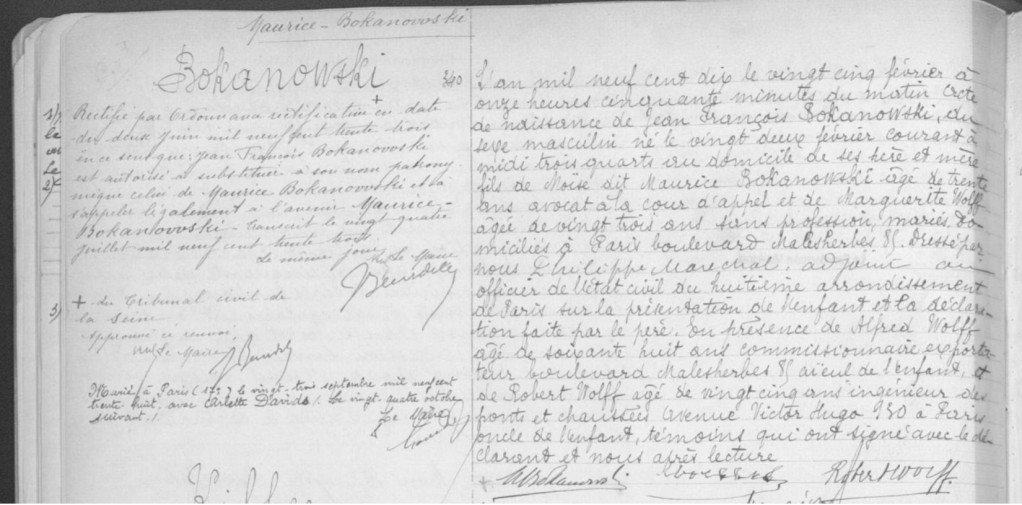 Maurice - Bokanowski
Bokanowski
340
Rectifié par Ordonnance rectification + en date
du deux Juin mil neuf cent trente trois
en ce sens que : Jean François Bokanowski
est autorisé à substituer à son nom patrony-
mique celui de Maurice Bokanowski et à
s'appeler légalement à l'avenir Maurice-
Bokanowski - transcrit le vingt quatre
juillet mil neuf cent trente trois.
Le même jour Le Maire
+ du tribunal civil de
la Seine
approuvé ce renvoi,
Le Maire
3)
Marié à Paris (17e) le vingt-trois septembre mil neuf cent
trente huit, avec Arlette Davids /. Le vingt quatre octobre
suivant./.
Le Maire
L'an mil neuf cent dix le vingt cinq février à
onze heures cinquante minutes du matin Acte
de naissance de Jean François Bokanowski, du
sexe masculin né le vingt deux février courant à
midi trois quarts au domicile de ses père et mère
fils de Moïse dit Maurice Bokanowski âgé de trente
ans avocat à la cour d'appel et de Marguerite Wolff
âgée de vingt trois ans sans profession, mariés, do-
miciliés à Paris boulevard Malesherbes 85. Dressé par
nous Philippe Maréchal, adjoint au
officier de l'état civil du huitième arrondissement
de Paris sur la présentation de l'enfant et la déclara-
tion faite par le père. En présence de Alfred Wolff
âgé de soixante huit ans commissionnaire exporta-
teur boulevard Malesherbes 85 aïeul de l'enfant, et
de Robert Wolff âgé de vingt cinq ans ingénieur des
ponts et chaussées Avenue Victor Hugo 130 à Paris
oncle de l'enfant, témoins qui ont signé avec le dé-
clarant et nous après lecture
MBokanowski
Robert Wolff